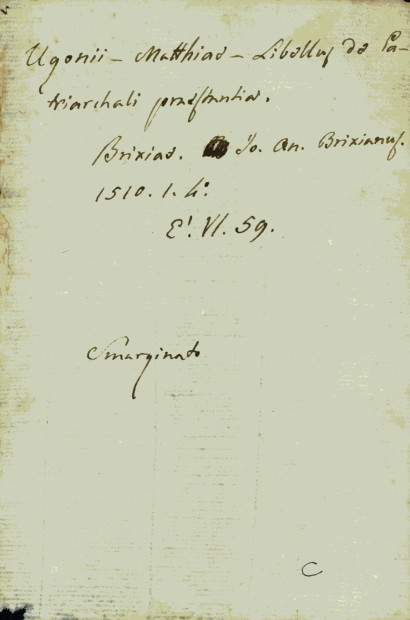 Ugonii - Matthiae - Libellus de Pa-
triarchali praestantia.
Brixiae. Io. An. Brixianus.
1510. 1. 4º
E'. VI. 59.
Smarginato
C